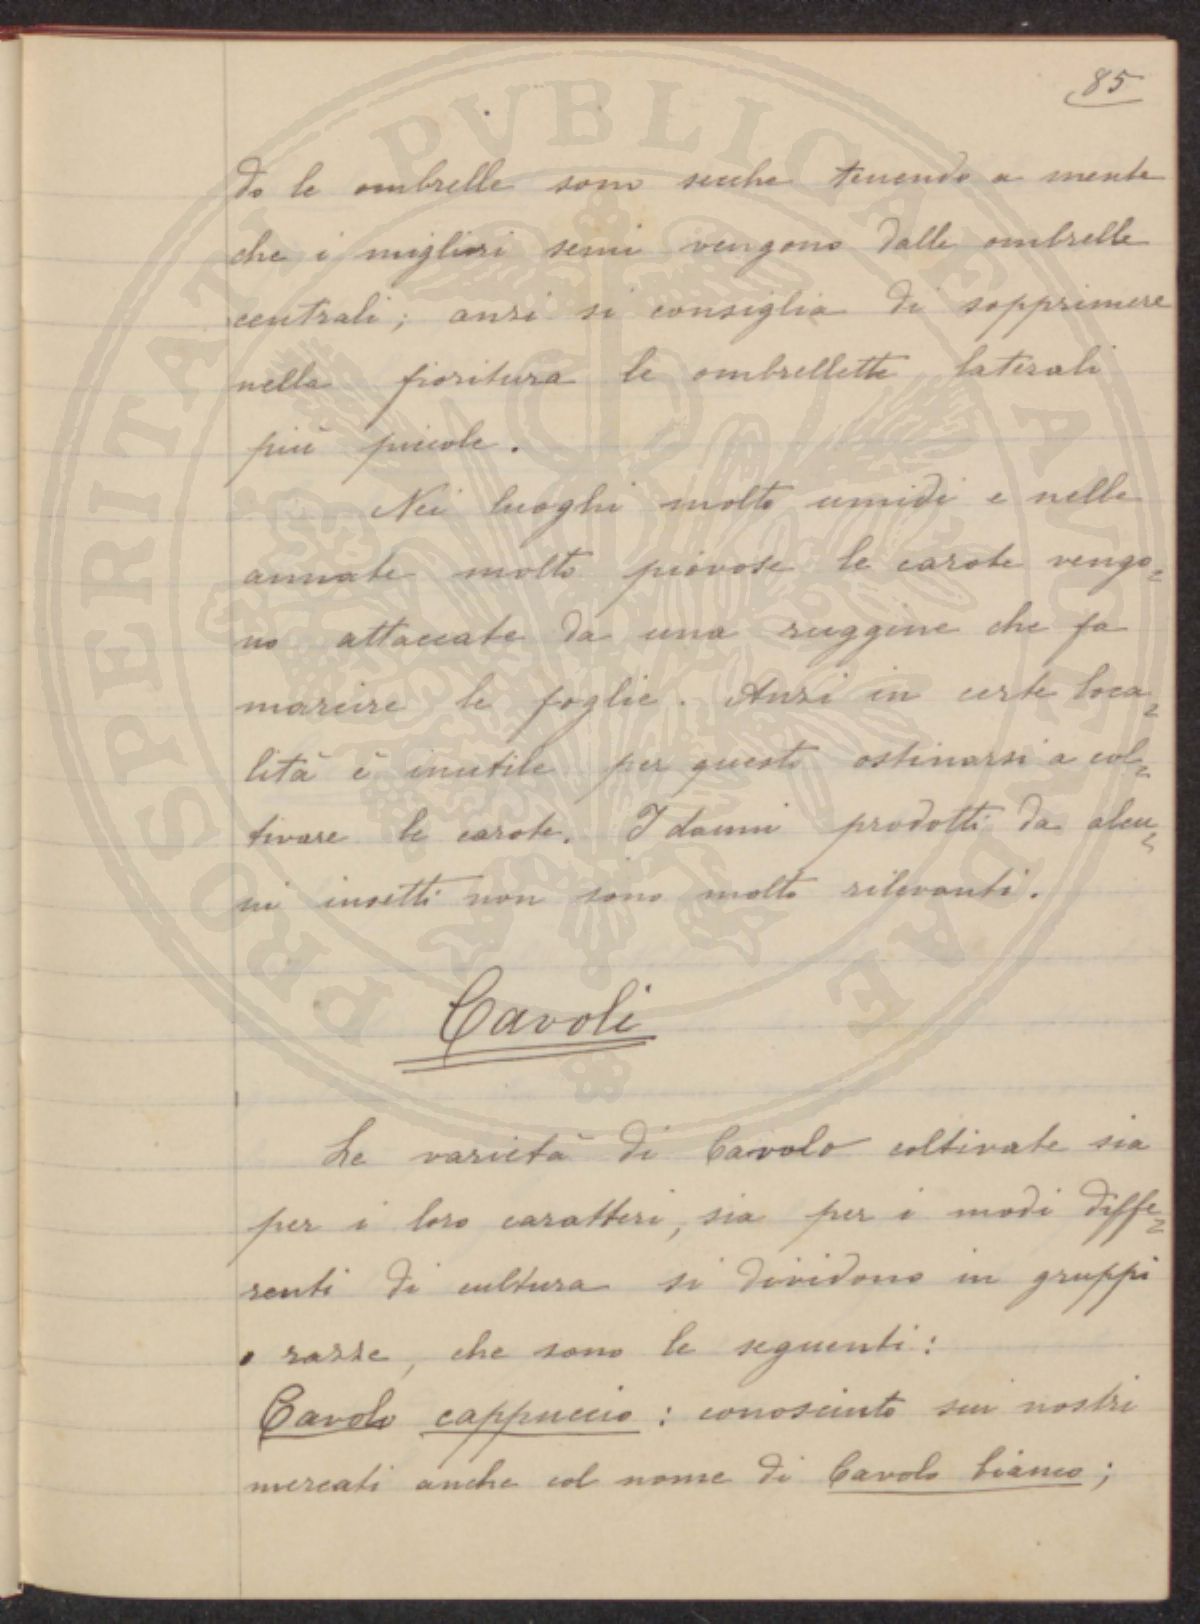 85
do le ombrelle sono secche tenendo a mente
che i migliori semi vengono dalle ombrelle
centrali; anzi si consiglia di sopprimere
nella fioritura le ombrellette laterali
più piccole.
Nei luoghi molto umidi e nelle
annate molto piovose le carote vengo=
no attaccate da una ruggine che fa
marcire le foglie. Anzi in certe loca=
lità è inutile per questo ostinarsi a col=
tivare le carote. I danni prodotti da alcu=
ni insetti non sono molto rilevanti.
Cavoli
Le varietà di Cavolo coltivate sia
per i loro caratteri, sia per i modi diffe=
renti di cultura si dividono in gruppi
o razze, che sono le seguenti:
Cavolo cappuccio: conosciuto sui nostri
mercati anche col nome di Cavolo bianco;
PROSPERITATI PVBLICAE AVGENDAE